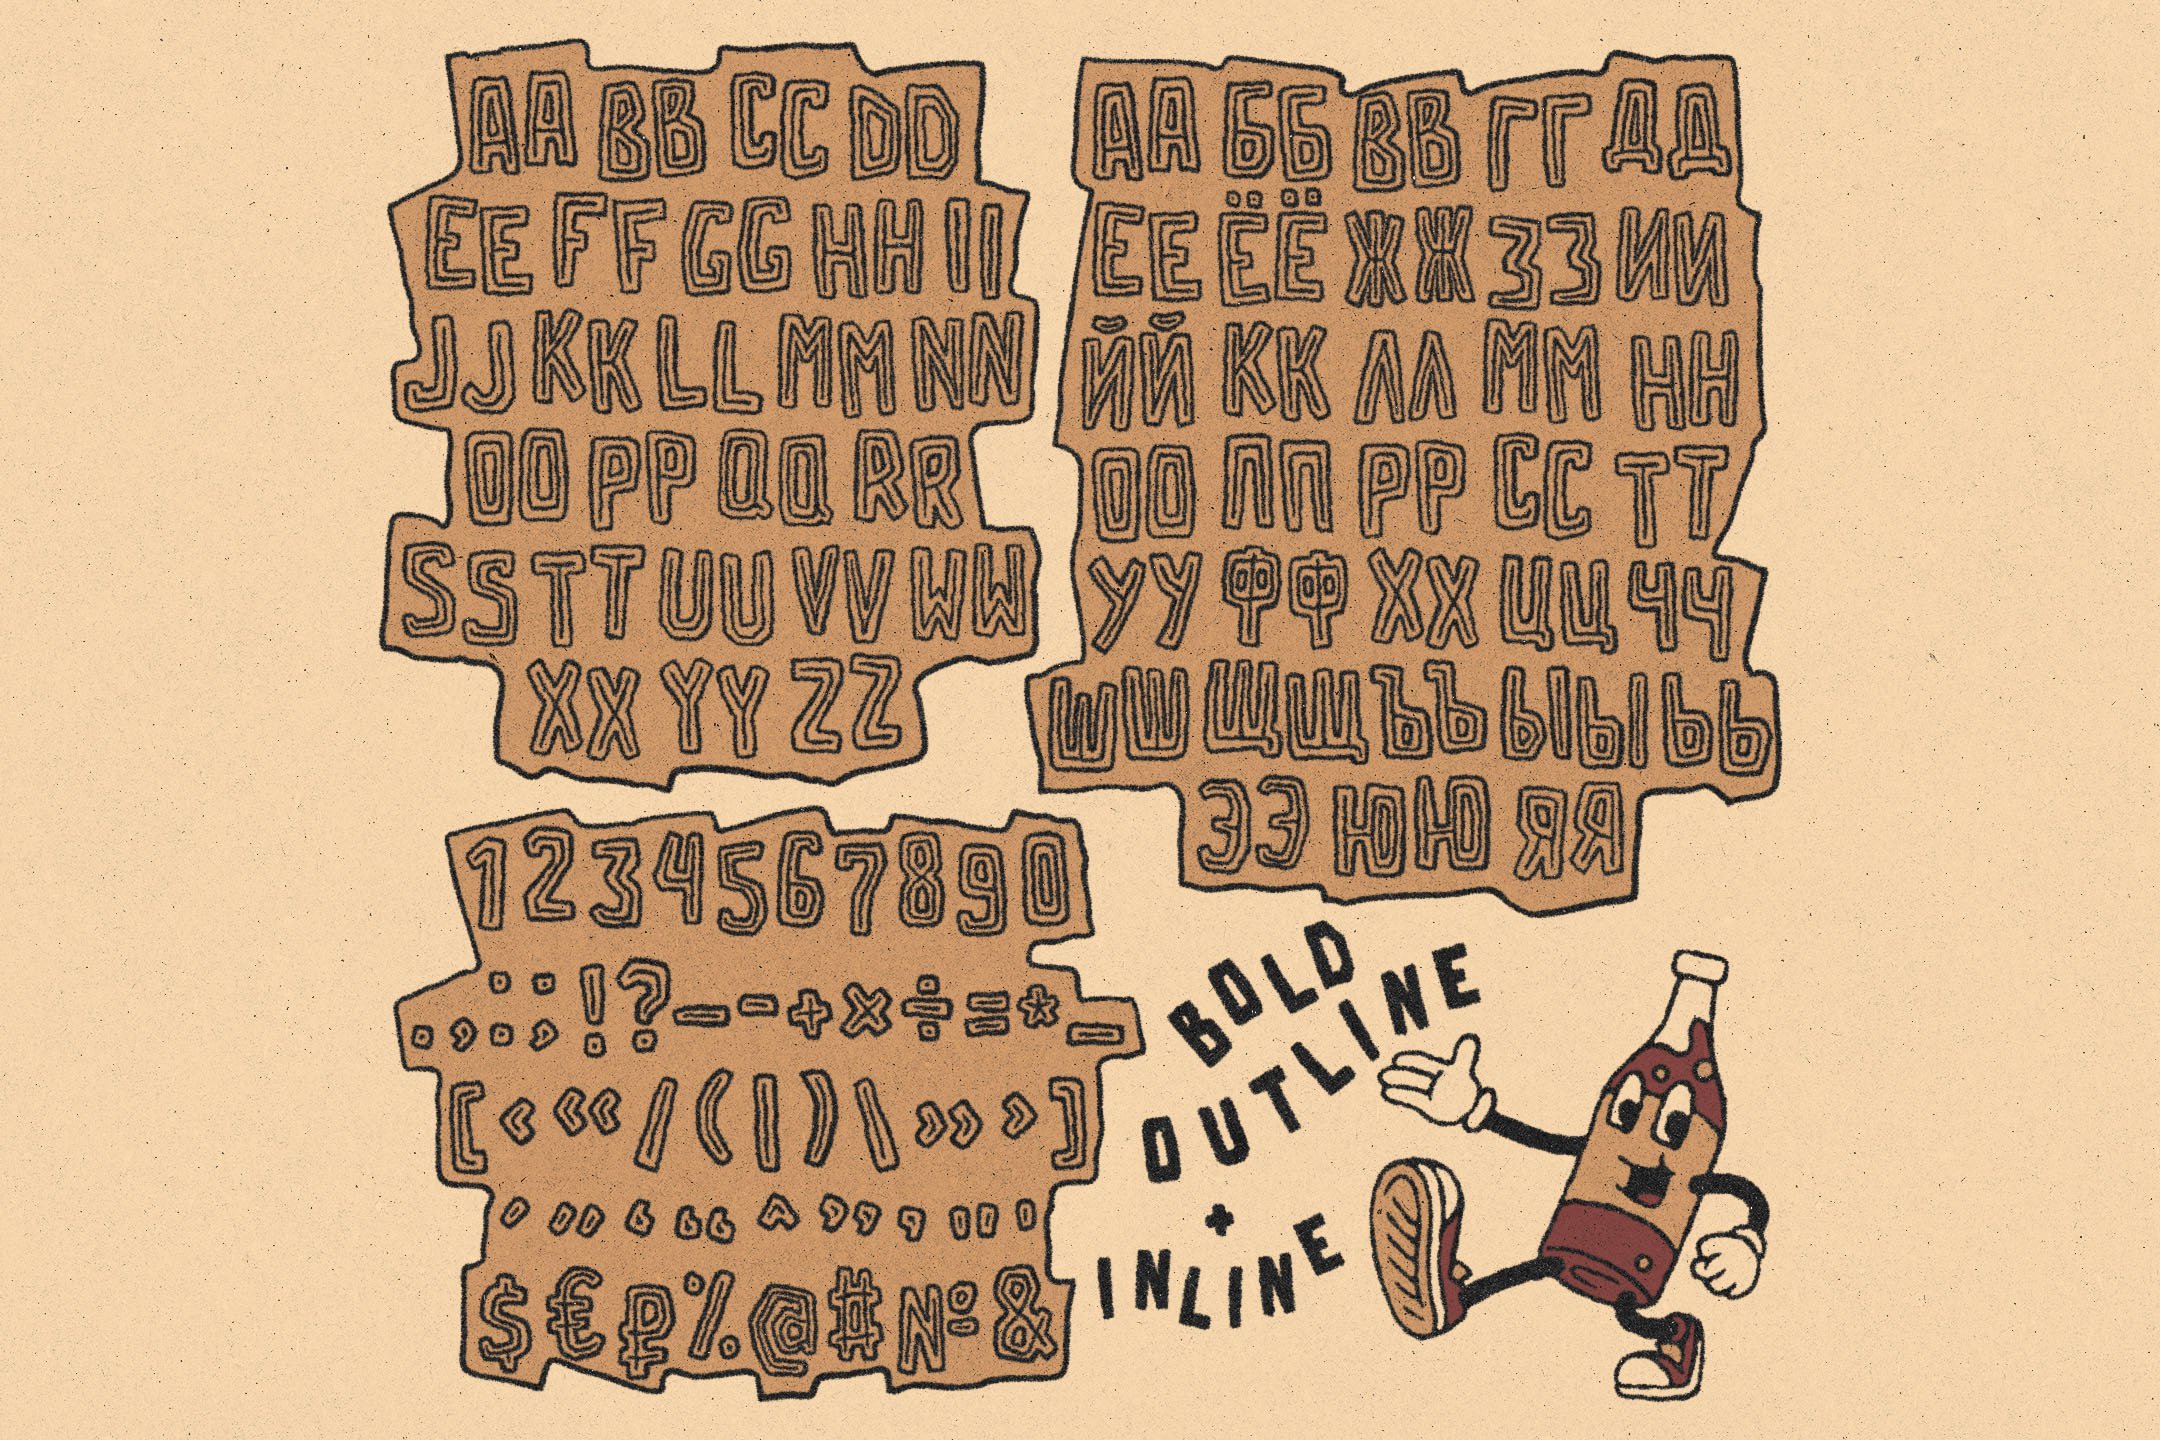 AA BB CC DD
EE FF GG HH II
JJ KK LL MM NN
OO PP QQ RR
SS TT UU VV WW
XX YY ZZ
АА ББ ВВ ГГ ДД
ЕЕ ЁЁ ЖЖ ЗЗ ИИ
ЙЙ КК ЛЛ ММ НН
ОО ПП РР СС ТТ
УУ ФФ ХХ ЦЦ ЧЧ
ШШ ЩЩ ЪЪ ЫЫ ЬЬ
ЭЭ ЮЮ ЯЯ
1234567890
. , : ; ! ? — - + × ÷ = * _
[ ‹ « / ( | ) \ » › ]
׳ ״ ‘ “ ^ ” ’ " '
$ € ₽ % @ # № &
BOLD
OUTLINE
+
INLINE